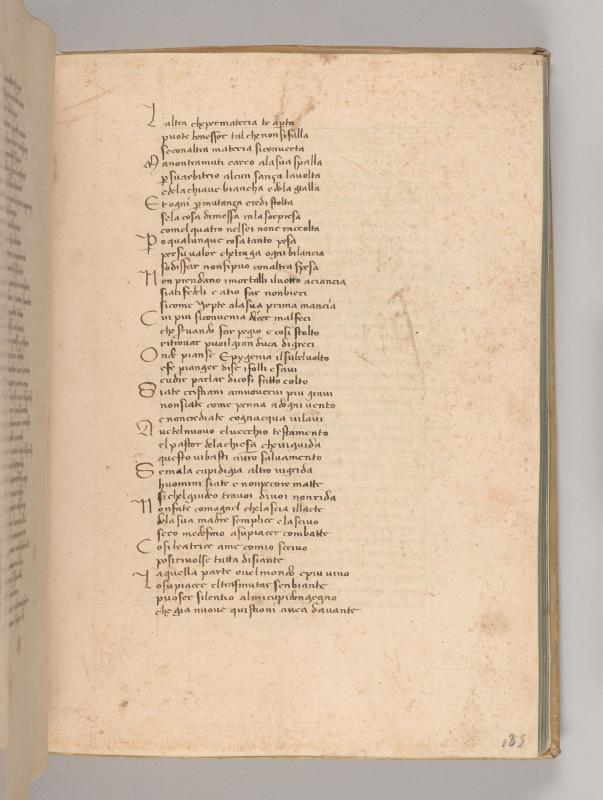 135
L altra che per materia te apta
puoteben essor tal che non si falla
se con altra materia si converta
M a non tramuti carco a la sua spalla
p suarbitrio alcun sanza la volta
e de la chiave biancha e de la gialla
E t ogni pmutanza credi stolta
se la cosa dimessa in la sorpresa
come l quatro nel sei non e raccolta
P o qualunque cosa tanto pesa
per su valor che traga ogni bilancia
sodisfar non si puo con altra spesa
N on prendano i mortalli il votto a ciancia
siati fedeli e a tio far non bieci
si come Yepte a la sua prima mancia
C ui piu si convenia dicer mal feci
che servando far pegio e cosi stolto
ritrovar puoi il gran duca di greci
O nde pianse Epygenia il su bel volto
e fe pianger di se i folli e savi
cudir parlar di cosi fatto colto
S iate cristiani a muovervi piu gravi
non siate come penna ad ogni vento
e non crediate cogn acqua vi lavi
A vete l nuovo e l vecchio testamento
e l pastor de la chiesa che vi guida
questo vi basti a vostro salvamento
S e mala cupidigia altro vi grida
huomini siate e non pecore matte
si che l giudeo tra voi di voi non rida
N on fate com agnel che lascia il lacte
de la sua madre semplice e lascivo
seco medesmo a su piacer combatte
C osi beatrice a me com io scrivo
poi si rivolse tutta disiante
I a quella parte ove l mondo e piu vivo
L o su piacer e l trasmutar senbiante
puoser silentio al mi cupido ngegno
che gia nuove quistioni avea davante
139